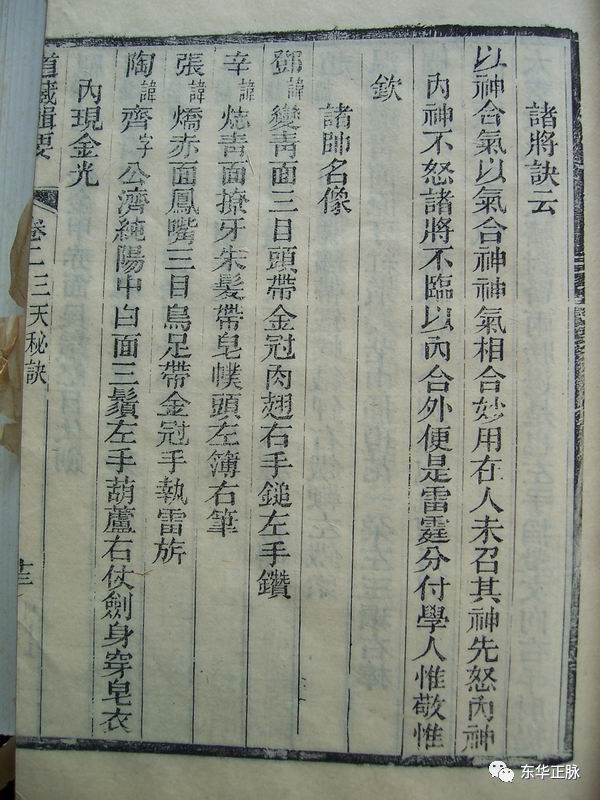 諸將訣云
以神合氣以氣合神神氣相合妙用在人未召其神先怒內神
內神不怒諸將不臨以內合外便是雷霆分付學人惟敬惟
欽
諸帥名像
鄧諱變青面三目頭帶金冠肉翅右手鎚左手鑽
辛諱炕青面撩牙朱髮帶皂幞頭左簿右筆
張諱燆赤面鳳嘴三目鳥足帶金冠手執雷旂
陶諱齊字公濟純陽巾白面三鬚左手葫蘆右仗劍身穿皂衣
內現金光
道藏輯要
卷二三天秘訣
十三
东华正脉